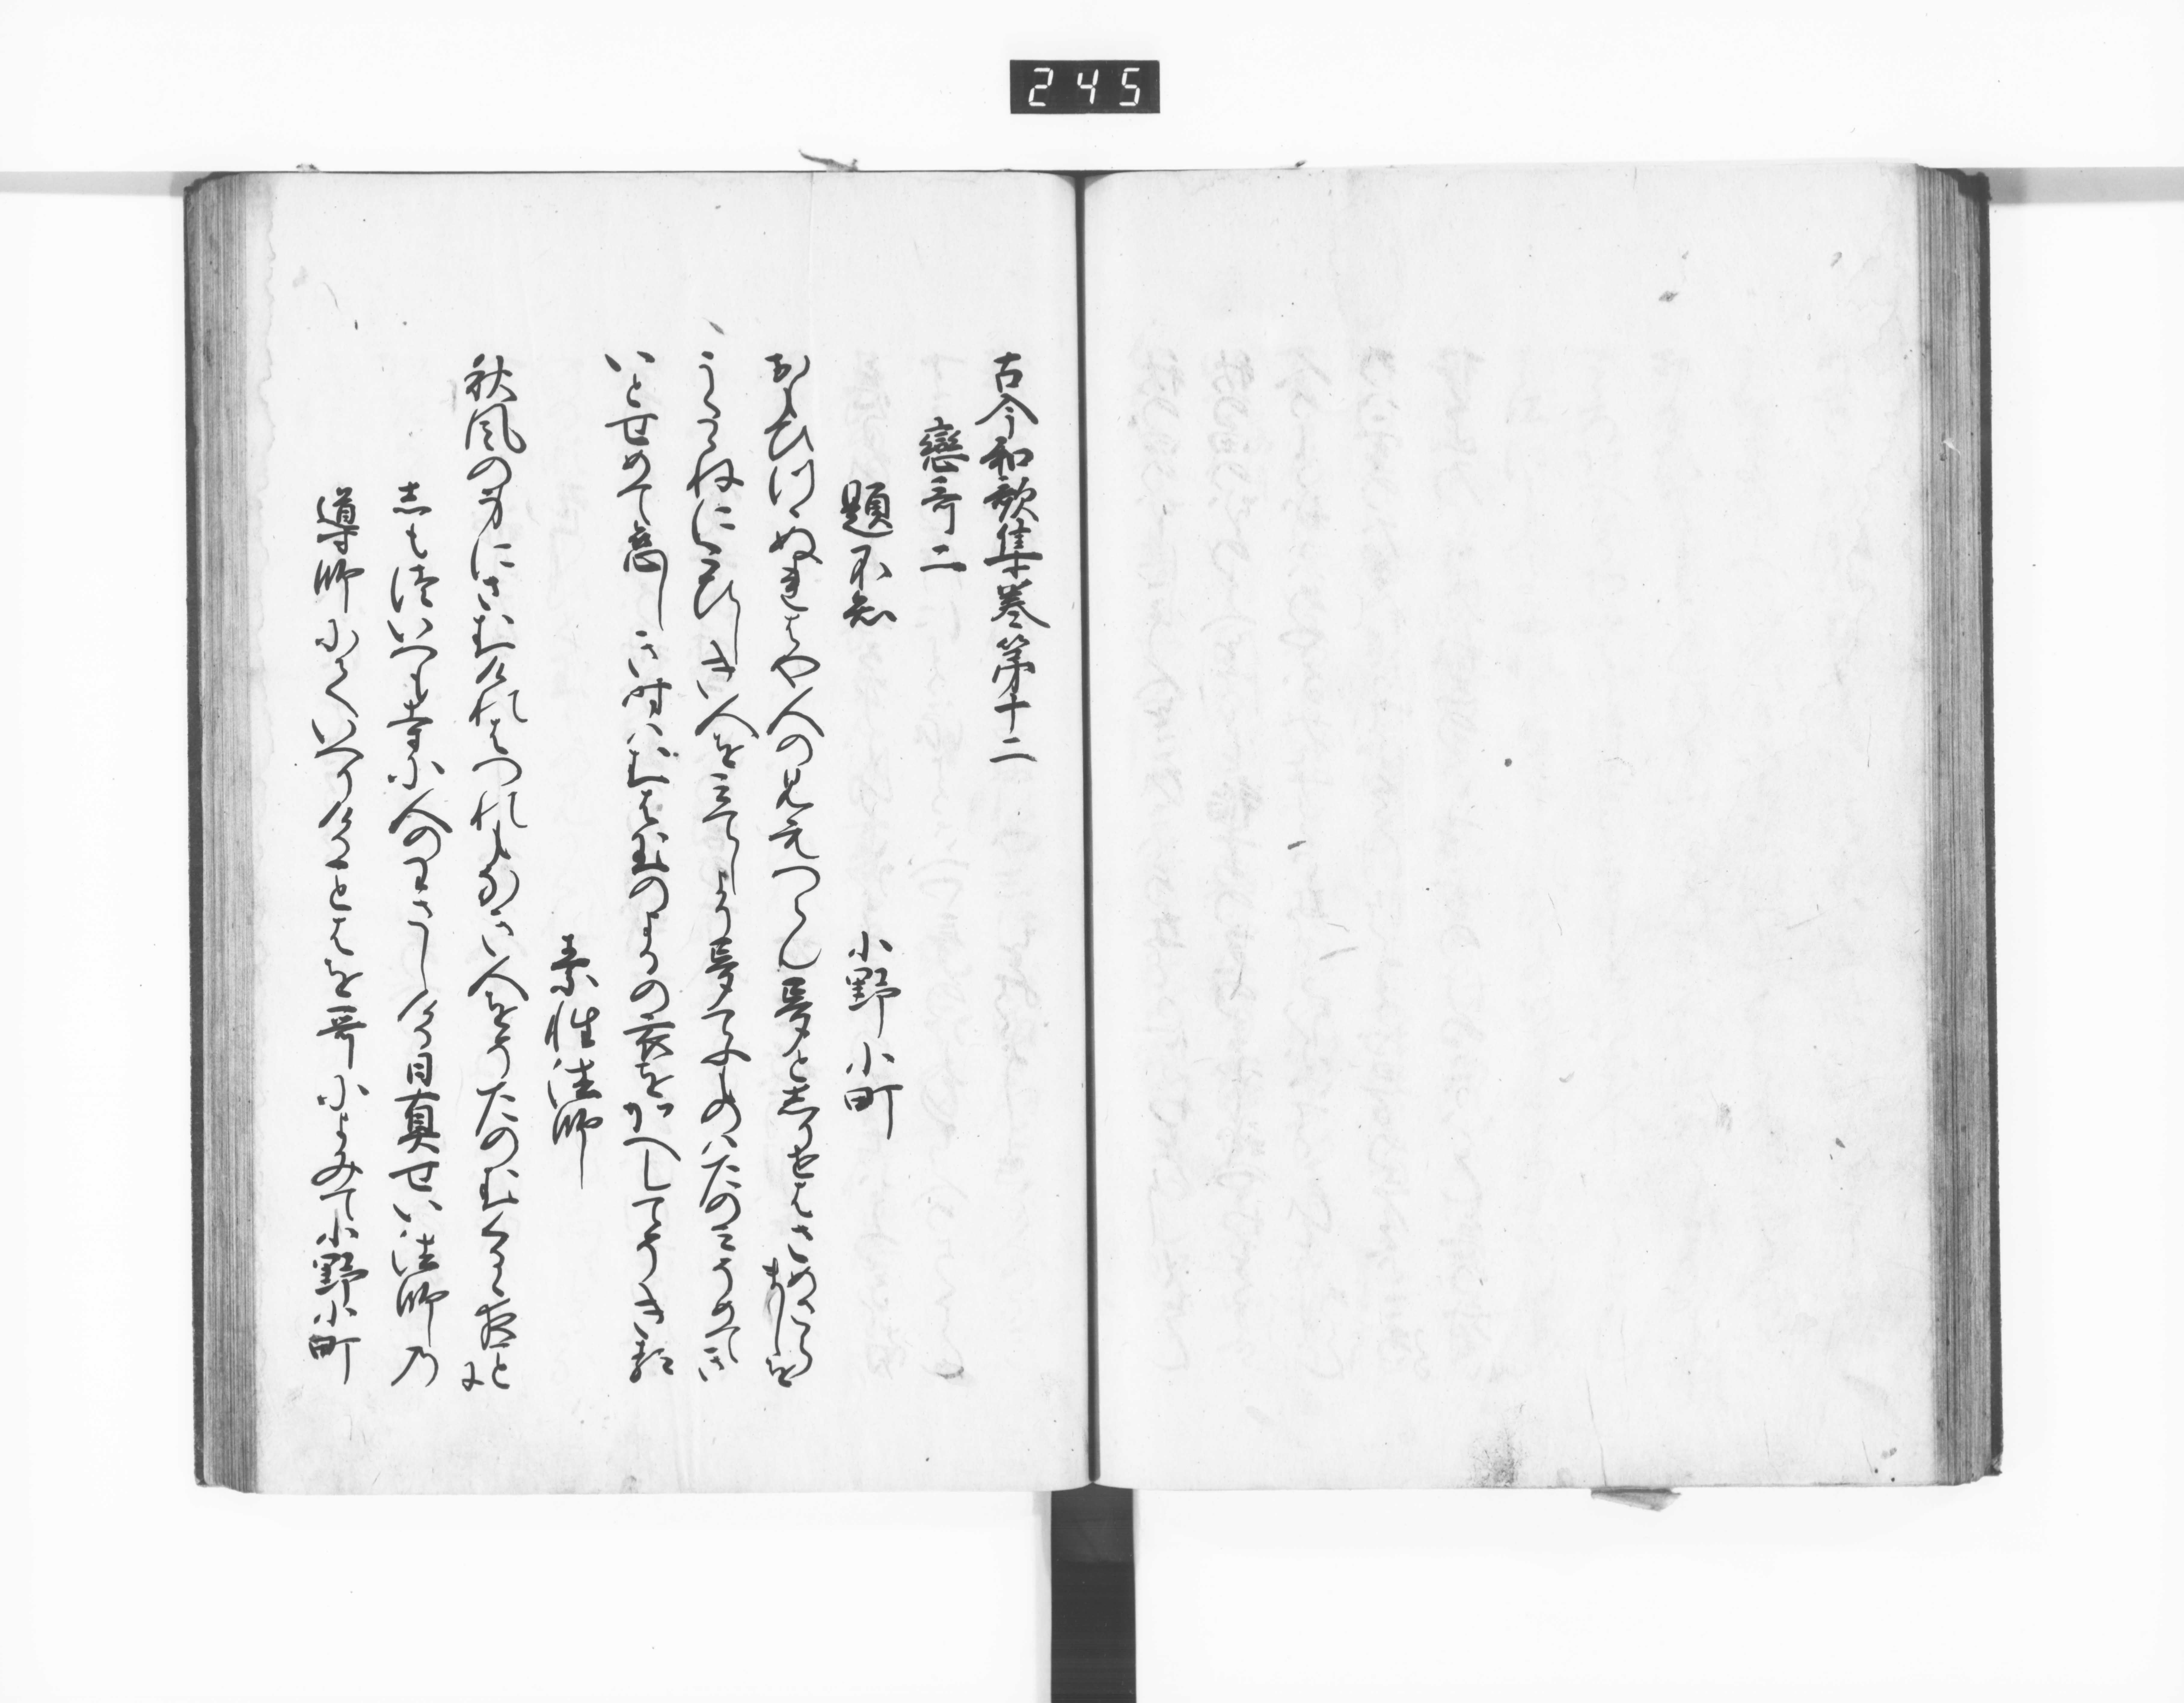 245
古今和歌集巻第十二
戀哥二
題不知　小野小町
おもひつゝぬれはや人の見えつらん夢と志りせはさめさらましを
うたゝねに恋しき人を三てしより夢てふものハたのミそめてき
いとせめて恋しき時ハむは玉のよるの衣をかへしてそきる
素性法師
秋風の身にさむけれはつれもなき人をそたのむくるゝ夜ことに
志もついつも寺に人のわさしける日真せい法師乃
導師にていへりけることはを哥によみて小野小町